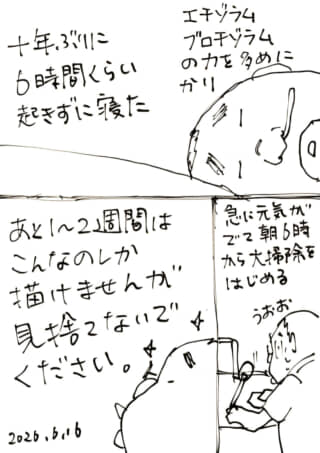 十年ぶりに
6時間くらい
起きずに寝た
エチゾラム
ブロチゾラム
の力を多めに
かり
急に元気が
でて朝6時
から大掃除を
はじめる
うおお
あと1〜2週間は
こんなのしか
描けませんが
見捨てないで
ください。
2026.6.16